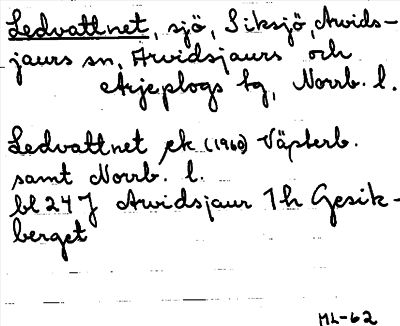 Ledvattnet, sjö, Siksjö, Arvids-
jaurs sn, Arvidsjaurs och
Arjeplogs tg, Norrb. l.
Ledvattnet ek (1960) Västerb.
samt Norrb. l.
bl 24 J Arvidsjaur 1h Gesik-
berget
ML-62